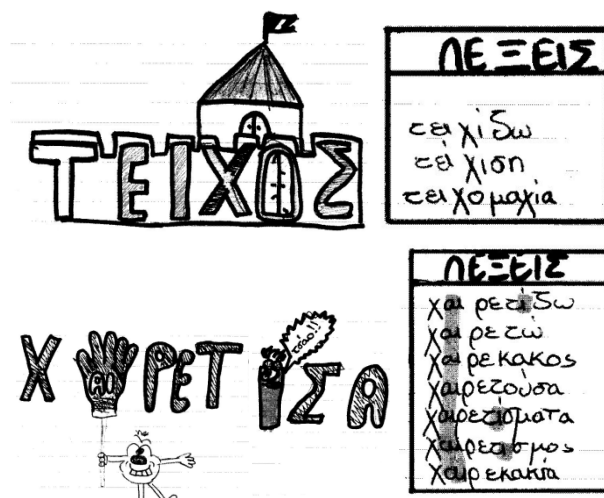 ΤΕΙΧΟΣ
ΛΕΞΕΙΣ
τειχίζω
τείχιση
τειχομαχία
τσαο!!
ΧΑΙΡΕΤΙΣΑ
ΛΕΞΕΙΣ
χαιρετίζω
χαιρετώ
χαιρεκακος
χαιρετούσα
χαιρετίσματα
χαιρετισμος
χαιρεκακια